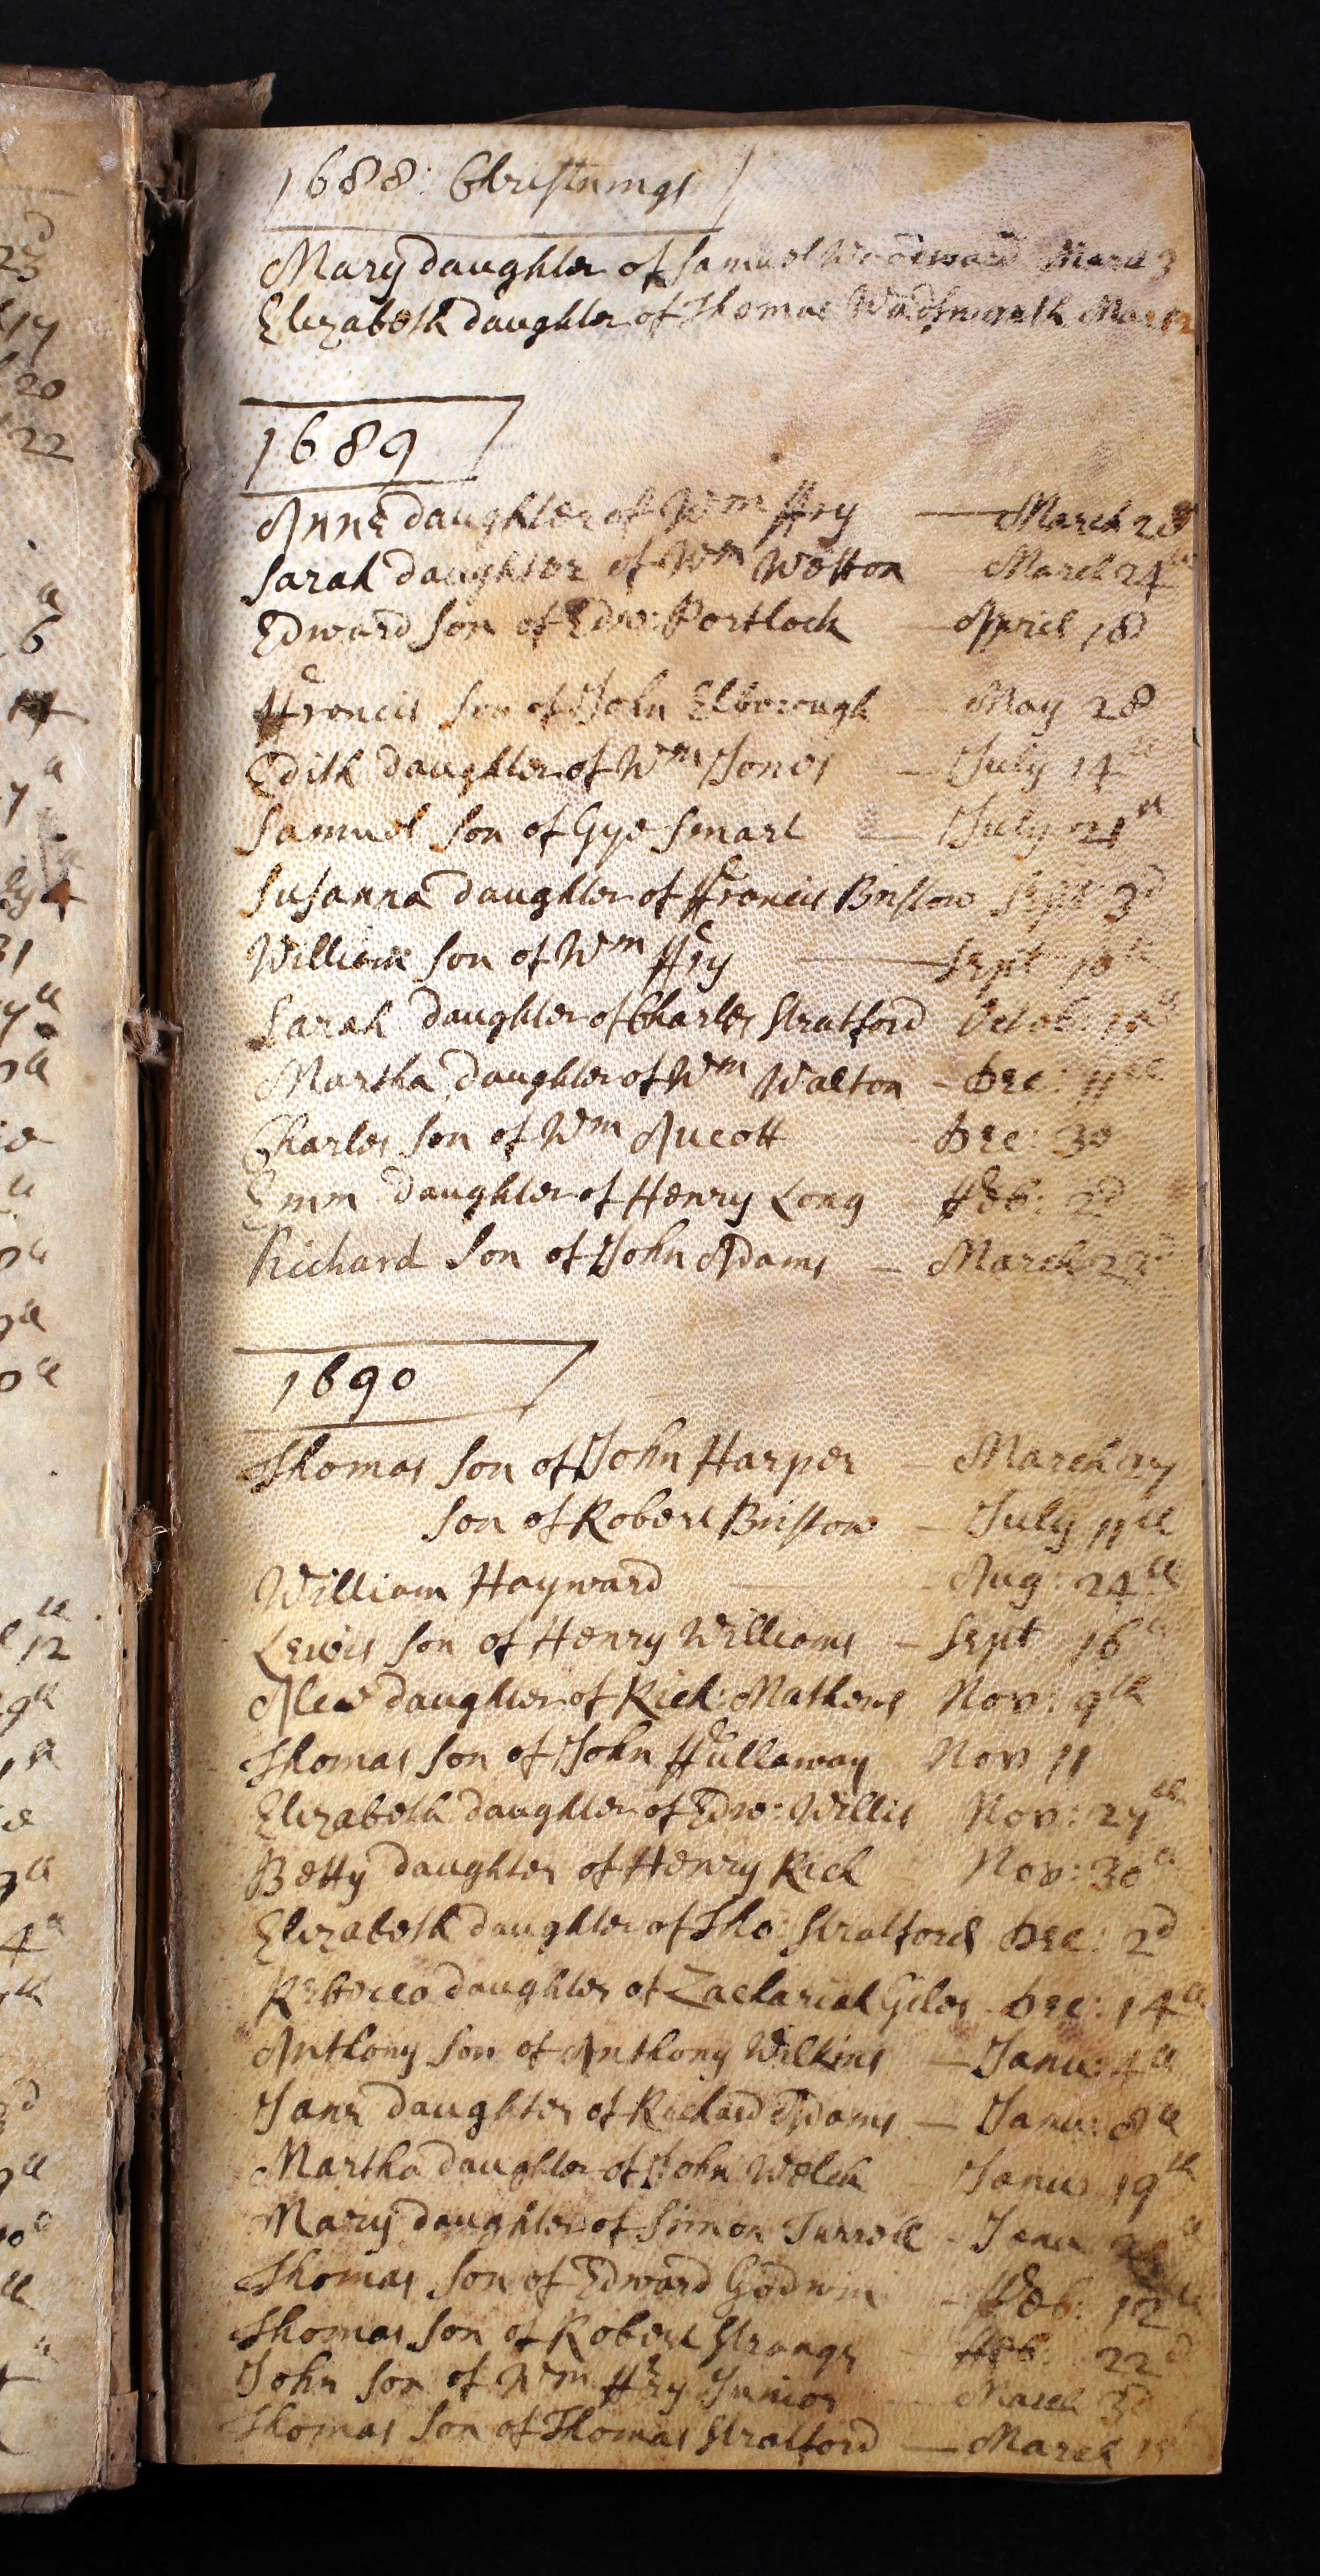 1688: Christnings
Mary daughter of Samuel Woodward March 3
Elizabeth daughter of Thomas Wadsworth
1689
Anne daughter of Wm ffry — March
Sarah daughter of Wm Wotton March 24th
Edward son of Edw: Portlock — April 18
ffrancis son of John Elborough — May 28
Edith daughter of Wm Jones — July 14th
Samuel son of Gye Smart — July 21th
Susanna daughter of ffrancis Bristow Sept: 3d
William son of Wm ffry — Sept 10th
Sarah daughter of Charles Stratford Octob:
Martha daughter of Wm Walton - Dec: 11th
Charles son of Wm Aucott - Dec: 30
Emm daughter of Henry Long ffeb: 2d
Richard son of John Adams — March
1690
Thomas son of John Harper — March 27
son of Robert Bristow — July 11th
William Hayward Aug: 24th
Lewis son of Henry Williams — Sept 16th
Alce daughter of Rich: Mathews Nov: 9th
Thomas son of John ffullaway Nov 11
Elizabeth daughter of Edw: Willis Nov: 27th
Betty daughter of Henry Rich Nov: 30th
Elizabeth daughter of Tho: Stratford Dec: 2d
Rebecca daughter of Zachariah Giles Dec: 14th
Anthony son of Anthony Wilkins — Janu: 4th
Jane daughter of Richard Adams — Janu: 8th
Martha daughter of John Welch Janu 19th
Mary daughter of Simon Turrell - Janu
Thomas son of Edward Godwin - ffeb: 12th
Thomas son of Robert Strange ffeb: 22d
John son of Wm ffry Junior March 3d
Thomas son of Thomas Stratford — March